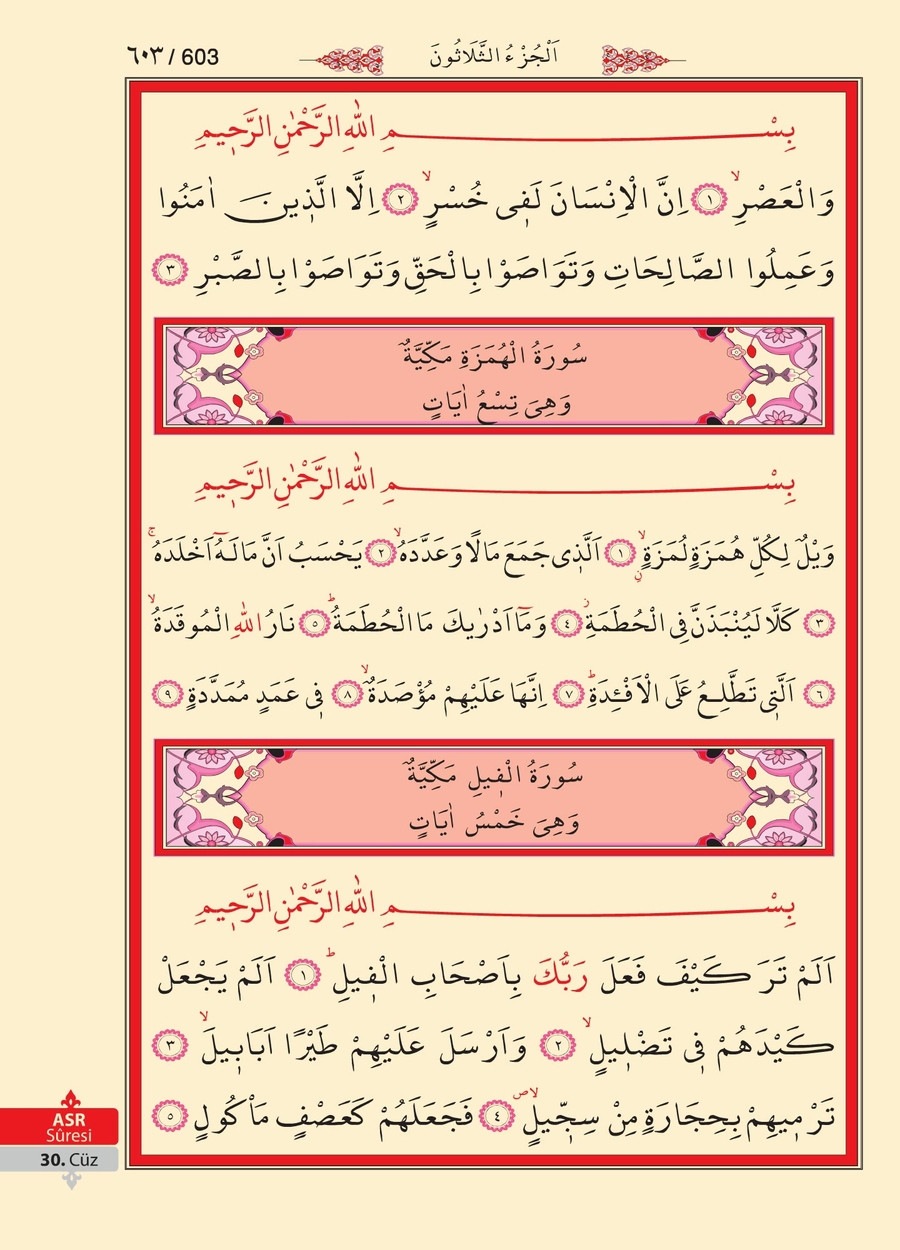 ٦٠٣ / 603
اَلْجُزْءُ الثَّلَاثُونَ
بِسْمِ اللّٰهِ الرَّحْمٰنِ الرَّح۪يمِ
وَالْعَصْرِۙ ﴿١﴾ اِنَّ الْاِنْسَانَ لَف۪ى خُسْرٍۙ ﴿٢﴾ اِلَّا الَّذ۪ينَ اٰمَنُوا
وَعَمِلُوا الصَّالِحَاتِ وَتَوَاصَوْا بِالْحَقِّ وَتَوَاصَوْا بِالصَّبْرِ ﴿٣﴾
سُورَةُ الْهُمَزَةِ مَكِّيَّةٌ
وَهِىَ تِسْعُ اٰيَاتٍ
بِسْمِ اللّٰهِ الرَّحْمٰنِ الرَّح۪يمِ
وَيْلٌ لِكُلِّ هُمَزَةٍ لُمَزَةٍۙ ﴿١﴾ اَلَّذ۪ى جَمَعَ مَالًا وَعَدَّدَهُۙ ﴿٢﴾ يَحْسَبُ اَنَّ مَالَهُٓ اَخْلَدَهُۚ
﴿٣﴾ كَلَّا لَيُنْبَذَنَّ فِى الْحُطَمَةِۘ ﴿٤﴾ وَمَٓا اَدْرٰيكَ مَا الْحُطَمَةُۜ ﴿٥﴾ نَارُ اللّٰهِ الْمُوقَدَةُۙ
﴿٦﴾ اَلَّت۪ى تَطَّلِعُ عَلَى الْاَفْـِٔدَةِۜ ﴿٧﴾ اِنَّهَا عَلَيْهِمْ مُؤْصَدَةٌۙ ﴿٨﴾ ف۪ى عَمَدٍ مُمَدَّدَةٍ ﴿٩﴾
سُورَةُ الْف۪يلِ مَكِّيَّةٌ
وَهِىَ خَمْسُ اٰيَاتٍ
بِسْمِ اللّٰهِ الرَّحْمٰنِ الرَّح۪يمِ
اَلَمْ تَرَ كَيْفَ فَعَلَ رَبُّكَ بِاَصْحَابِ الْف۪يلِۜ ﴿١﴾ اَلَمْ يَجْعَلْ
كَيْدَهُمْ ف۪ى تَضْل۪يلٍۙ ﴿٢﴾ وَاَرْسَلَ عَلَيْهِمْ طَيْرًا اَبَاب۪يلَۙ ﴿٣﴾
تَرْم۪يهِمْ بِحِجَارَةٍ مِنْ سِجّ۪يلٍۙۖ ﴿٤﴾ فَجَعَلَهُمْ كَعَصْفٍ مَاْكُولٍ ﴿٥﴾
ASR
Sûresi
30. Cüz